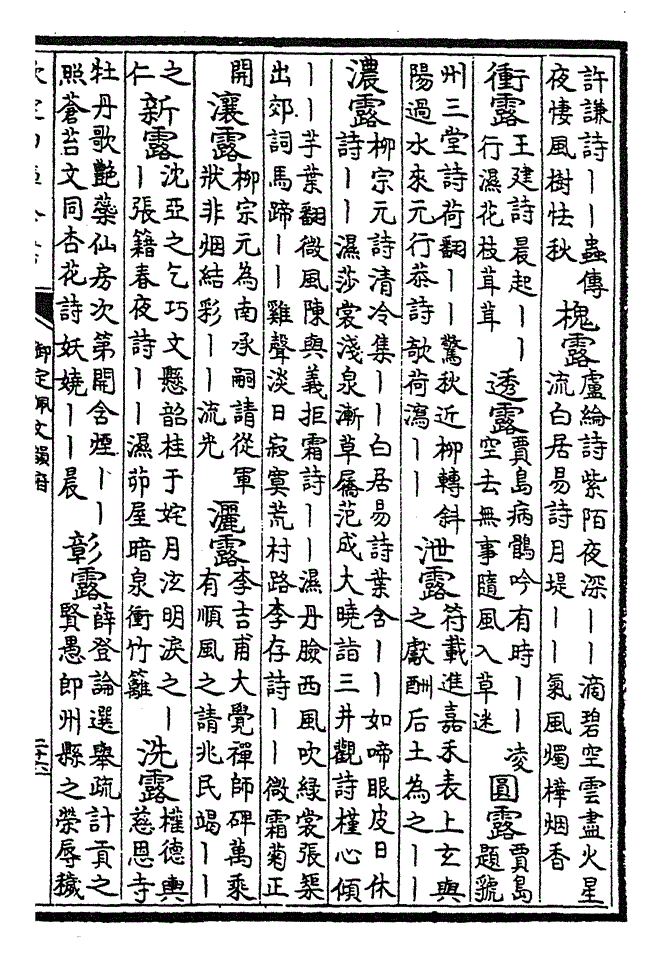 許謙詩丨丨蟲傳
夜悽風樹怯秋
槐露
盧綸詩紫陌夜深丨丨滴碧空雲盡火星
流白居易詩月堤丨丨氣風燭樺烟香
衝露
王建詩晨起丨丨
行濕花枝茸茸
透露
賈島病鶻吟有時丨丨凌
空去無事隨風入草迷
圓露
賈島
題虢
州三堂詩荷翻丨丨驚秋近柳轉斜
陽過水來元行恭詩欹荷瀉丨丨
泄露
符載進嘉禾表上玄與
之獻酬后土為之丨丨
濃露
柳宗元詩清冷集丨丨白居易詩葉含丨丨如啼眼皮日休
詩丨丨濕莎裳淺泉漸草屩范成大曉詣三井觀詩槿心傾
丨丨芋葉翻微風陳與義拒霜詩丨丨濕丹臉西風吹綠裳張榘
出郊詞馬蹄丨丨雞聲淡日寂寞荒村路李存詩丨丨微霜菊正
開
瀼露
柳宗元為南承嗣請從軍
狀非烟結彩丨丨流光
灑露
李吉甫大覺禪師碑萬乘
有順風之請兆民竭丨丨
之
仁
新露
沈亞之乞巧文懸韶桂于姹月泫明淚之丨
丨張籍春夜詩丨丨濕茆屋暗泉衝竹籬
洗露
權德輿
慈恩寺
牡丹歌艷蘂仙房次第開含煙丨丨
照蒼苔文同杏花詩妖嬈丨丨晨
彰露
薛登論選舉疏計貢之
賢愚即州縣之榮辱穢
御定佩文韻府
二十六